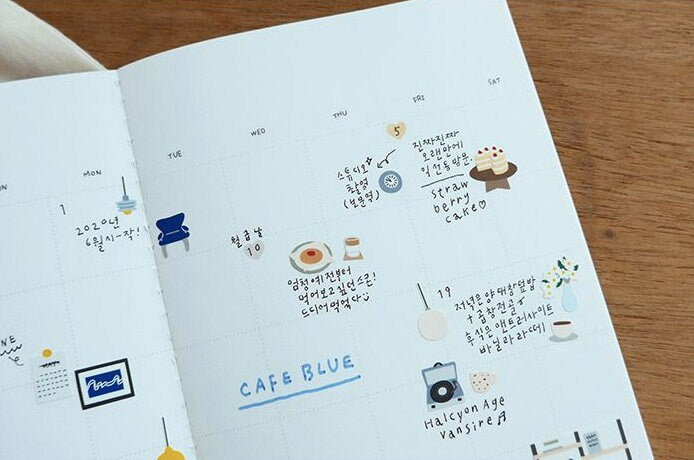 MON
TUE
WED
THU
FRI
SAT
1
2020년
6월 시-작!
5
스튜디오
촬영
(보문역)
진짜진짜
오랜만에
익선동 방문.
straw
berry
cake♡
월급날
10
엄청 예전부터
먹어보고 싶던 스콘!
드디어 먹었다
19
저녁은 양대창덮밥
+ 곱창전골
후식은 앤트러사이트
바닐라라떼
CAFE BLUE
Halcyon Age
Vansire